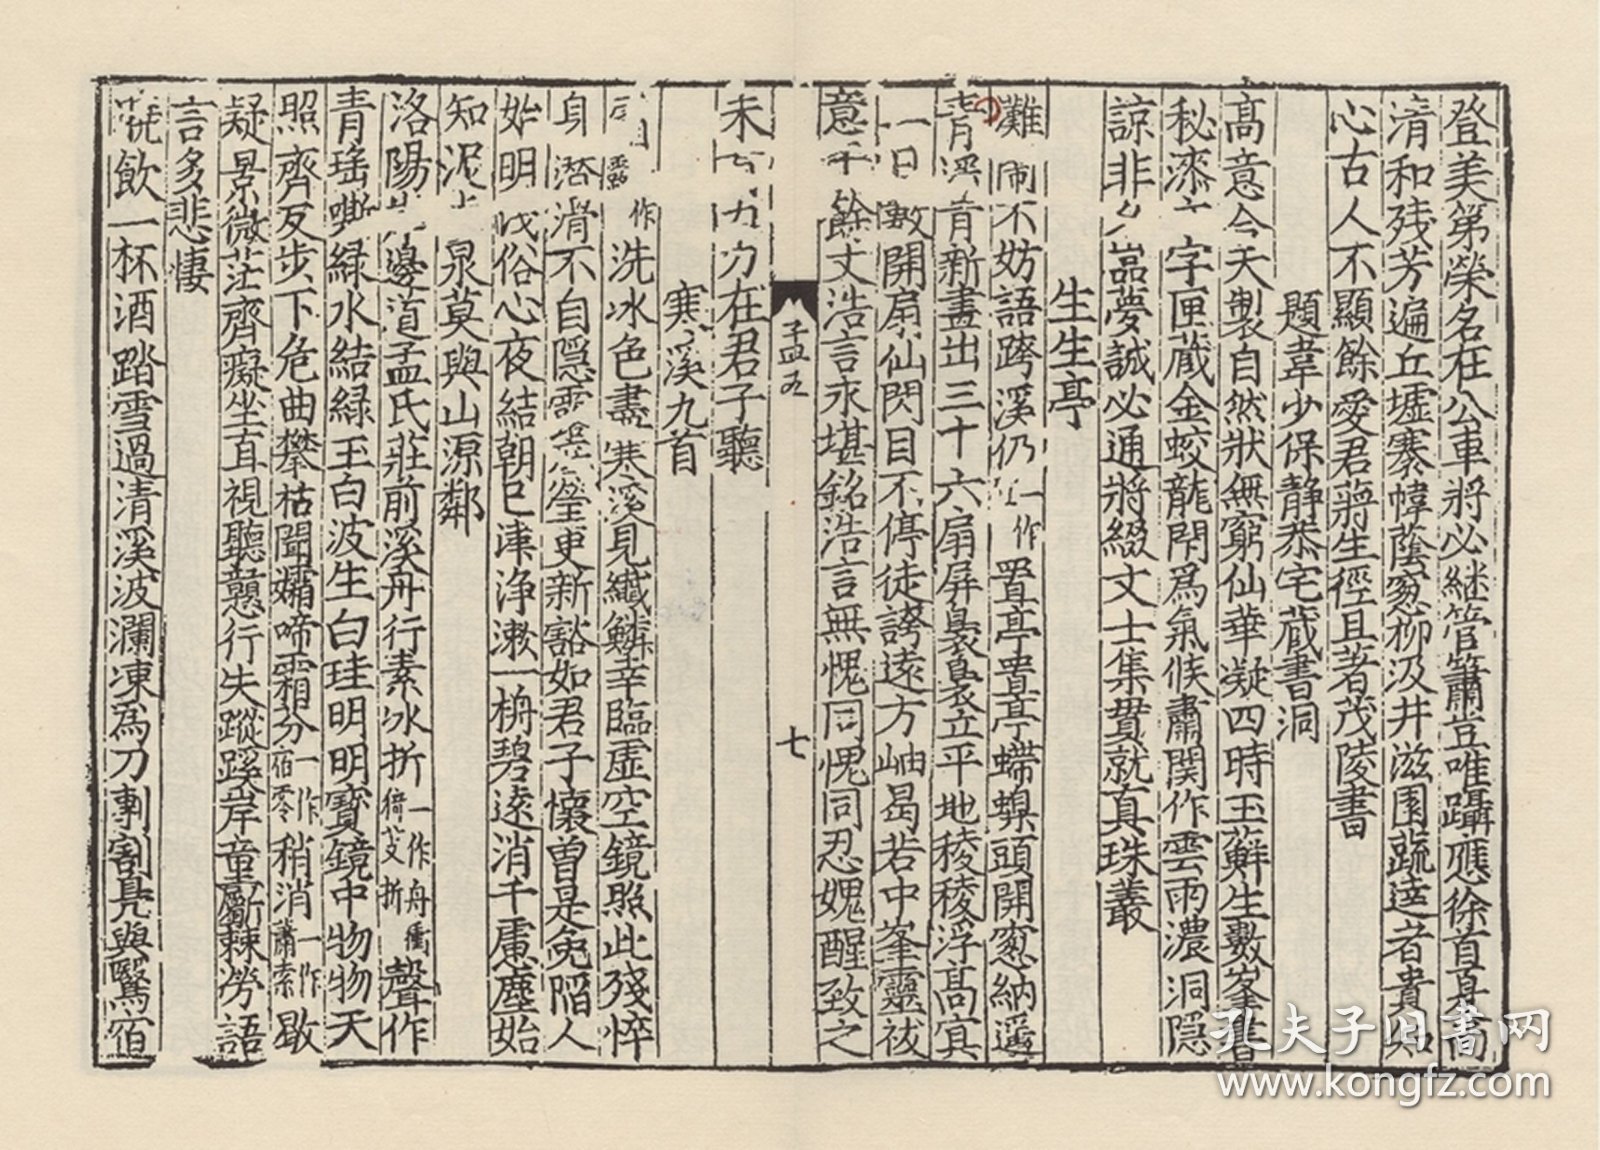 登美第榮名在公車將必繼管簫豈唯躡應徐首夏尚
清和残芳遍丘墟褰幃蔭窓柳汲井滋園蔬逹者貴知
心古人不顯餘愛君蔣生徑且著茂陵書
題韋少保静恭宅蔵書洞
高意合天製自然狀無窮仙華凝四時玉蘚生數峯
秘 字匣蔵金蛟龍閇爲氣候肅開作雲雨濃洞隠
諒非 夢誠必通將綴文士集貫就真珠叢
生生亭
灘閙不妨語跨溪仍 一作 置亭置亭㟷嵲頭開窓納遥
青遥青新畫出三十六扇屏裊裊立平地稜稜浮高㝠
一日 數開扇仙閃目不停徒誇逺方岫曷若中峯靈祓
意 餘丈浩言永堪銘浩言無愧同愧同忍媿醒致之
未 力在君子聽
寒溪九首
作 洗冰色盡寒溪見纖鱗幸臨虚空鏡照此残悴
身潜滑不自隠露 瑩更新豁如君子懷曽是危陷人
始明 俗心夜結朝已津浄漱一掬碧逺消千慮塵始
知泥 泉莫與山源鄰
洛陽 邊道孟氏莊前溪舟行素冰折 一作舟衝綺芰折 聲作
青瑶嘶緑水結緑玉白波生白珪明明寳鏡中物物天
照齊反步下危曲攀枯聞孀啼霜芬 一作宿零 稍消 一作蕭索 歇
疑景微茫齊癡坐直視聽戇行失蹤蹊岸童劚棘勞語
言多悲悽
曉飲一杯酒踏雪過清溪波瀾凍爲刀剸割鳬與鷖宿
孟五
七
孔夫子旧書网
www.kongfz.com